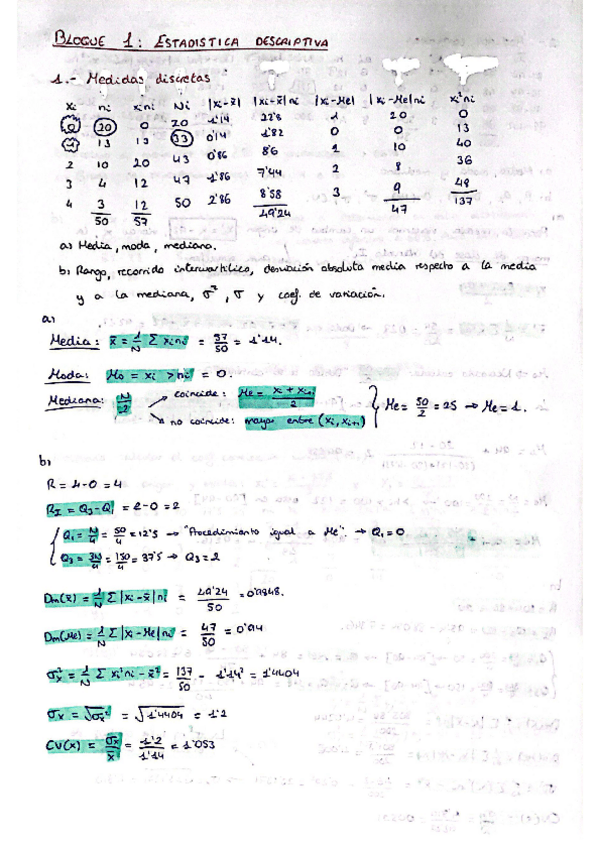 BLOQUE 1: ESTADISTICA DESCRIPTIVA
1.- Medidas discretas
xi ni xini Ni |xi-x̄| |xi-x̄|ni |xi-Me| |xi-Me|ni xi²ni
0 20 0 20 1'14 22'8 1 20 0
1 13 13 33 0'14 1'82 0 0 13
2 10 20 43 0'86 8'6 1 10 40
3 4 12 47 1'86 7'44 2 8 36
4 3 12 50 2'86 8'58 3 9 48
50 57 49'24 47 137
a) Media, moda, mediana.
b) Rango, recorrido intercuartilico, desviación absoluta media respecto a la media
y a la mediana, σ², σ y coef. de variación.
a)
Media: x̄ = 1/N Σ xini = 57/50 = 1'14.
Moda: Mo = xi > ni = 0.
Mediana: N/2 → coincide: Me = xi + xi+1 / 2
→ no coincide: mayor entre (xi, xi+1) } Me = 50/2 = 25 → Me = 1.
b)
R = 4-0 = 4
RI = Q3-Q1 = 2-0 = 2
Q1 = N/4 = 50/4 = 12'5 → "Procedimiento igual a Me" → Q1 = 0
Q3 = 3N/4 = 150/4 = 37'5 → Q3 = 2
Dm(x̄) = 1/N Σ |xi-x̄|ni = 49'24/50 = 0'9848.
Dm(Me) = 1/N Σ |xi-Me|ni = 47/50 = 0'94
σx² = 1/N Σ xi²ni - x̄² = 137/50 - 1'14² = 1'4404
σx = √σx² = √1'4404 = 1'2
CV(x) = σx/x̄ = 1'2/1'14 = 1'053